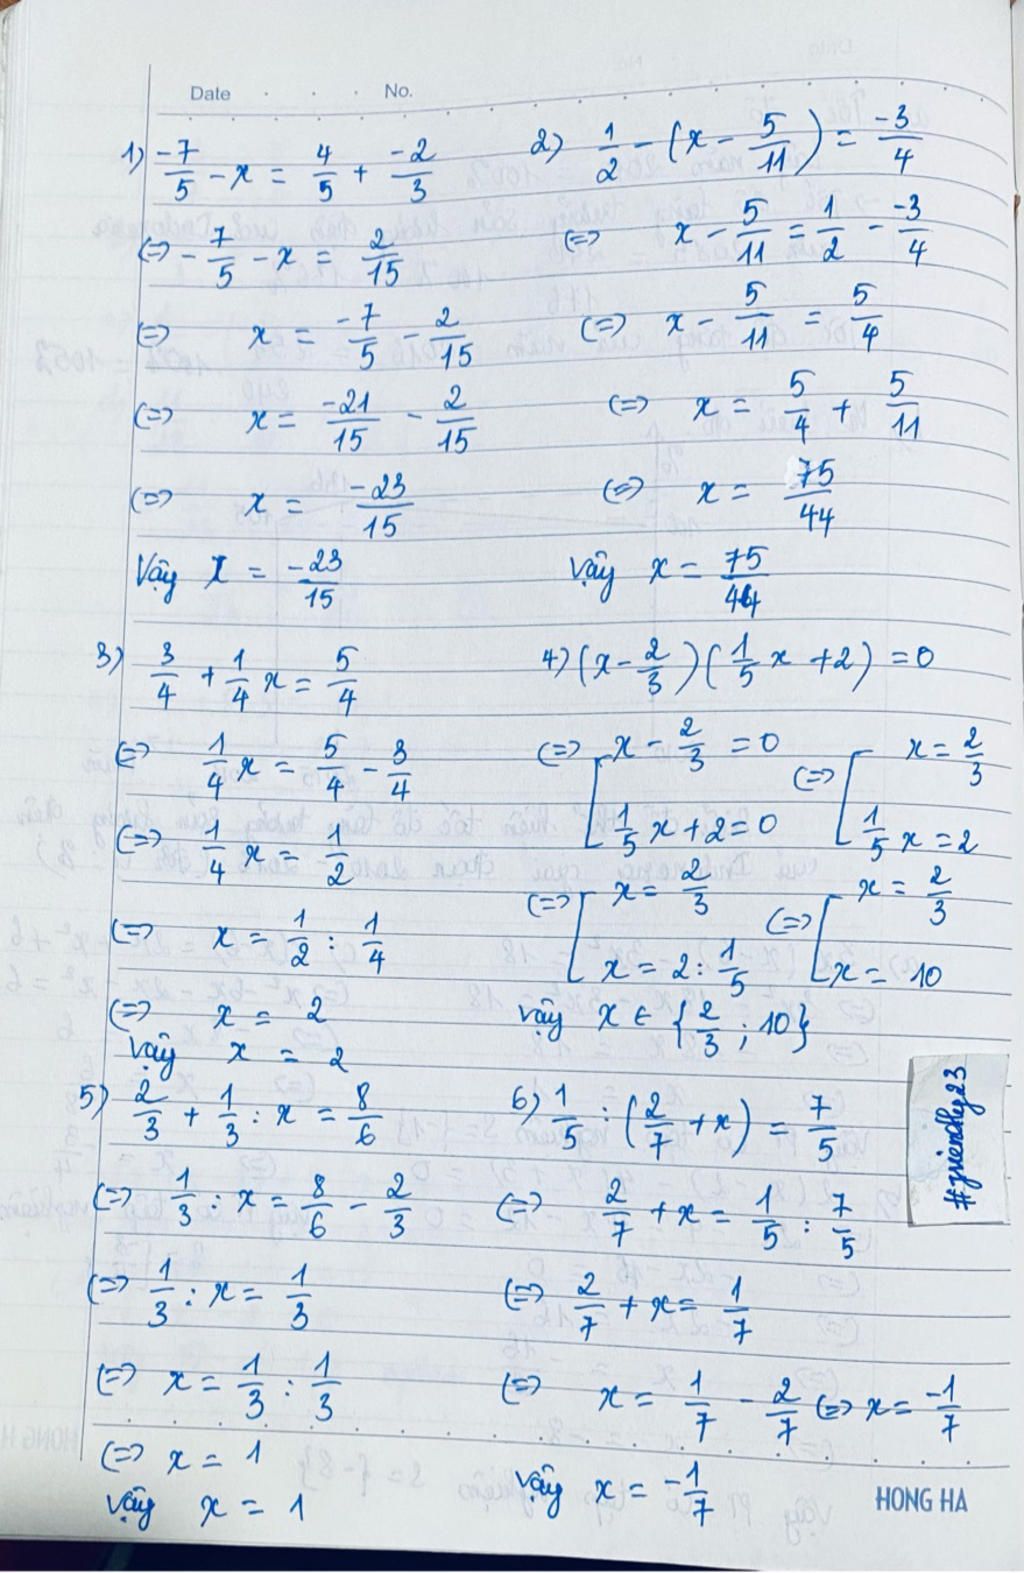 Date . . . No.
1) -7/5 - x = 4/5 + -2/3
(=) -7/5 - x = 2/15
(=) x = -7/5 - 2/15
(=) x = -21/15 - 2/15
(=) x = -23/15
Vậy x = -23/15
2) 1/2 - (x - 5/11) = -3/4
(=) x - 5/11 = 1/2 - -3/4
(=) x - 5/11 = 5/4
(=) x = 5/4 + 5/11
(=) x = 75/44
Vậy x = 75/44
3) 3/4 + 1/4 x = 5/4
(=) 1/4 x = 5/4 - 3/4
(=) 1/4 x = 1/2
(=) x = 1/2 : 1/4
(=) x = 2
Vậy x = 2
4) (x - 2/3)(1/5 x + 2) = 0
(=) [ x - 2/3 = 0 (=) [ x = 2/3
1/5 x + 2 = 0 1/5 x = 2
(=) [ x = 2/3 (=) [ x = 2/3
x = 2 : 1/5 x = 10
Vậy x ∈ {2/3 ; 10}
5) 2/3 + 1/3 : x = 8/6
(=) 1/3 : x = 8/6 - 2/3
(=) 1/3 : x = 1/3
(=) x = 1/3 : 1/3
(=) x = 1
Vậy x = 1
6) 1/5 : (2/7 + x) = 7/5
(=) 2/7 + x = 1/5 : 7/5
(=) 2/7 + x = 1/7
(=) x = 1/7 - 2/7 (=) x = -1/7
Vậy x = -1/7
HONG HA